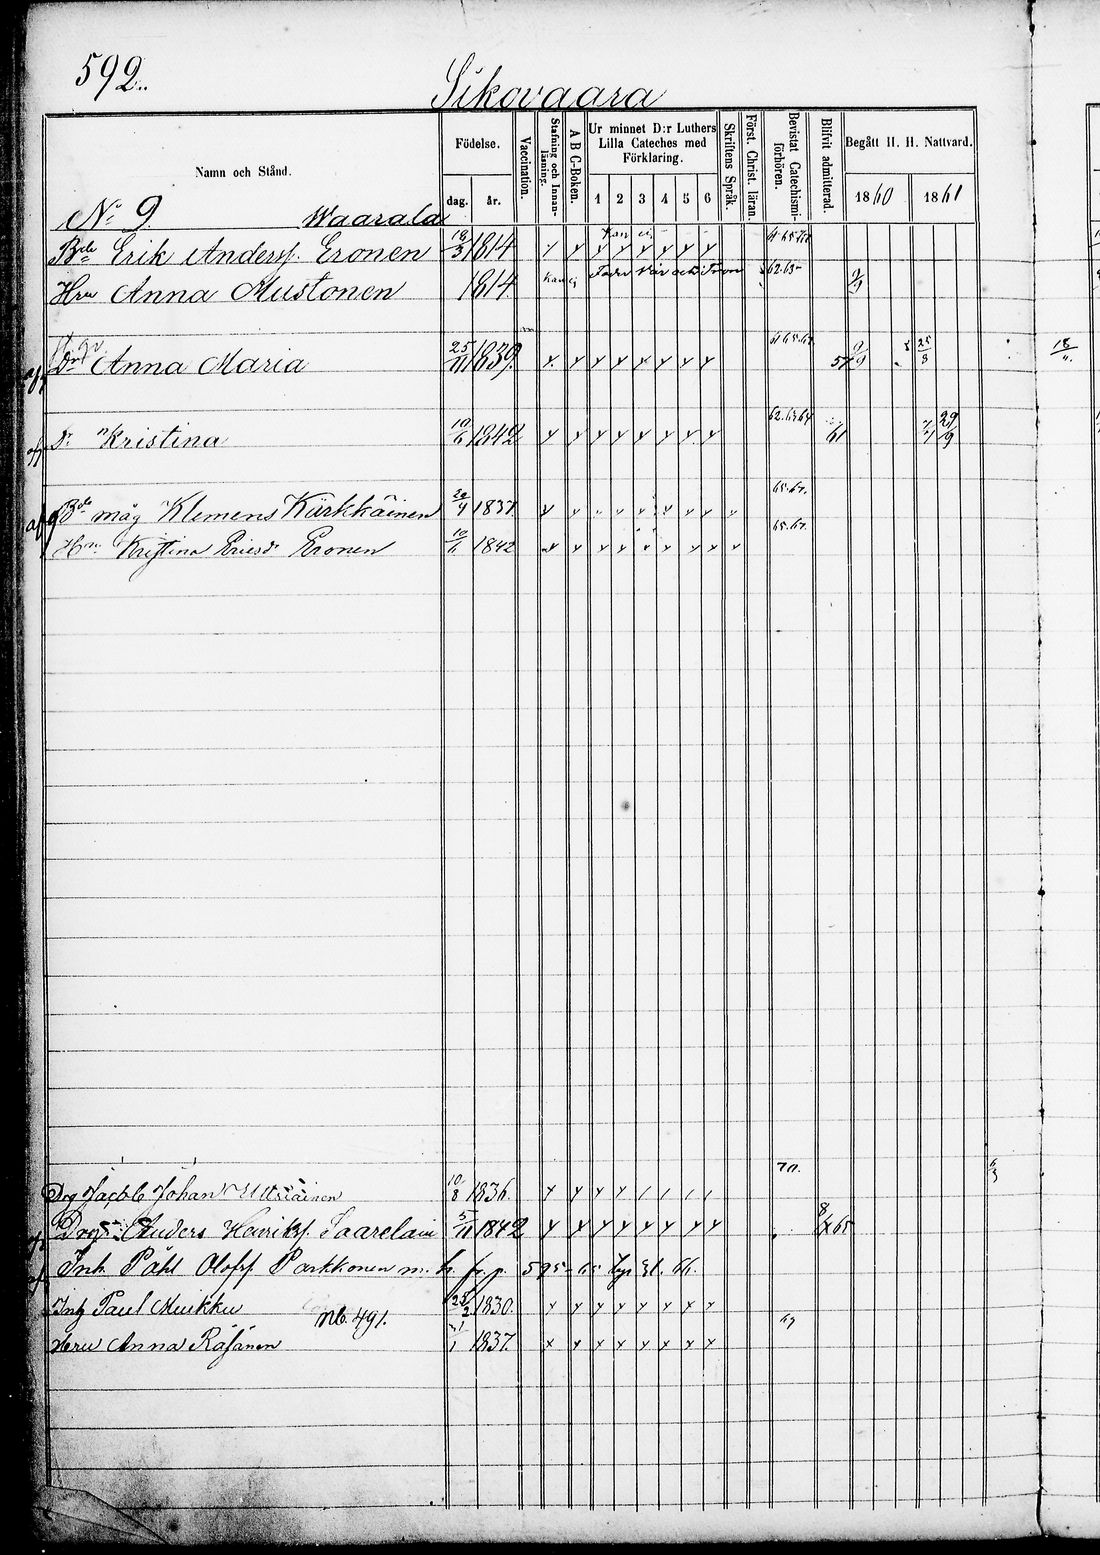 592.
Sikovaara
Namn och Stånd.
Födelse.
dag.
år.
Vaccination.
Stafning och Innanläsning.
A B C-Boken.
Ur minnet D:r Luthers Lilla Cateches med Förklaring.
1 2 3 4 5 6
Skriftens Språk.
Först. Christ. läran.
Bevistat Catechismiförhören.
Blifvit admitterad.
Begått H. H. Nattvard.
1860 1861
No 9. Waarala
Bde Erik Anderss. Eronen 18/3 1814
Kan ej
Hru Anna Mustonen 1814. Kan ej Fader vår och Tron 62.65
Dr Anna Maria 25/11 1839. 57
Dr Kristina 10/6 1842 62.63.64 61 29/9
Bde måg Klemens Kärkkäinen 20/4 1837 65.67.
Hru Kristina Ericsdr Eronen 10/6 1842 65.67.
70.
Drg Jacob Johan 10/8 1836.
Drg Anders Henrikss. Saarelain 5/11 1842 65
Inh. Påhl Olofss. Parkkonen m. h. fr. p. 595
Inh Paul Muikku 25/2 1830.
Nb. 491.
Hru Anna Räsänen 1837.